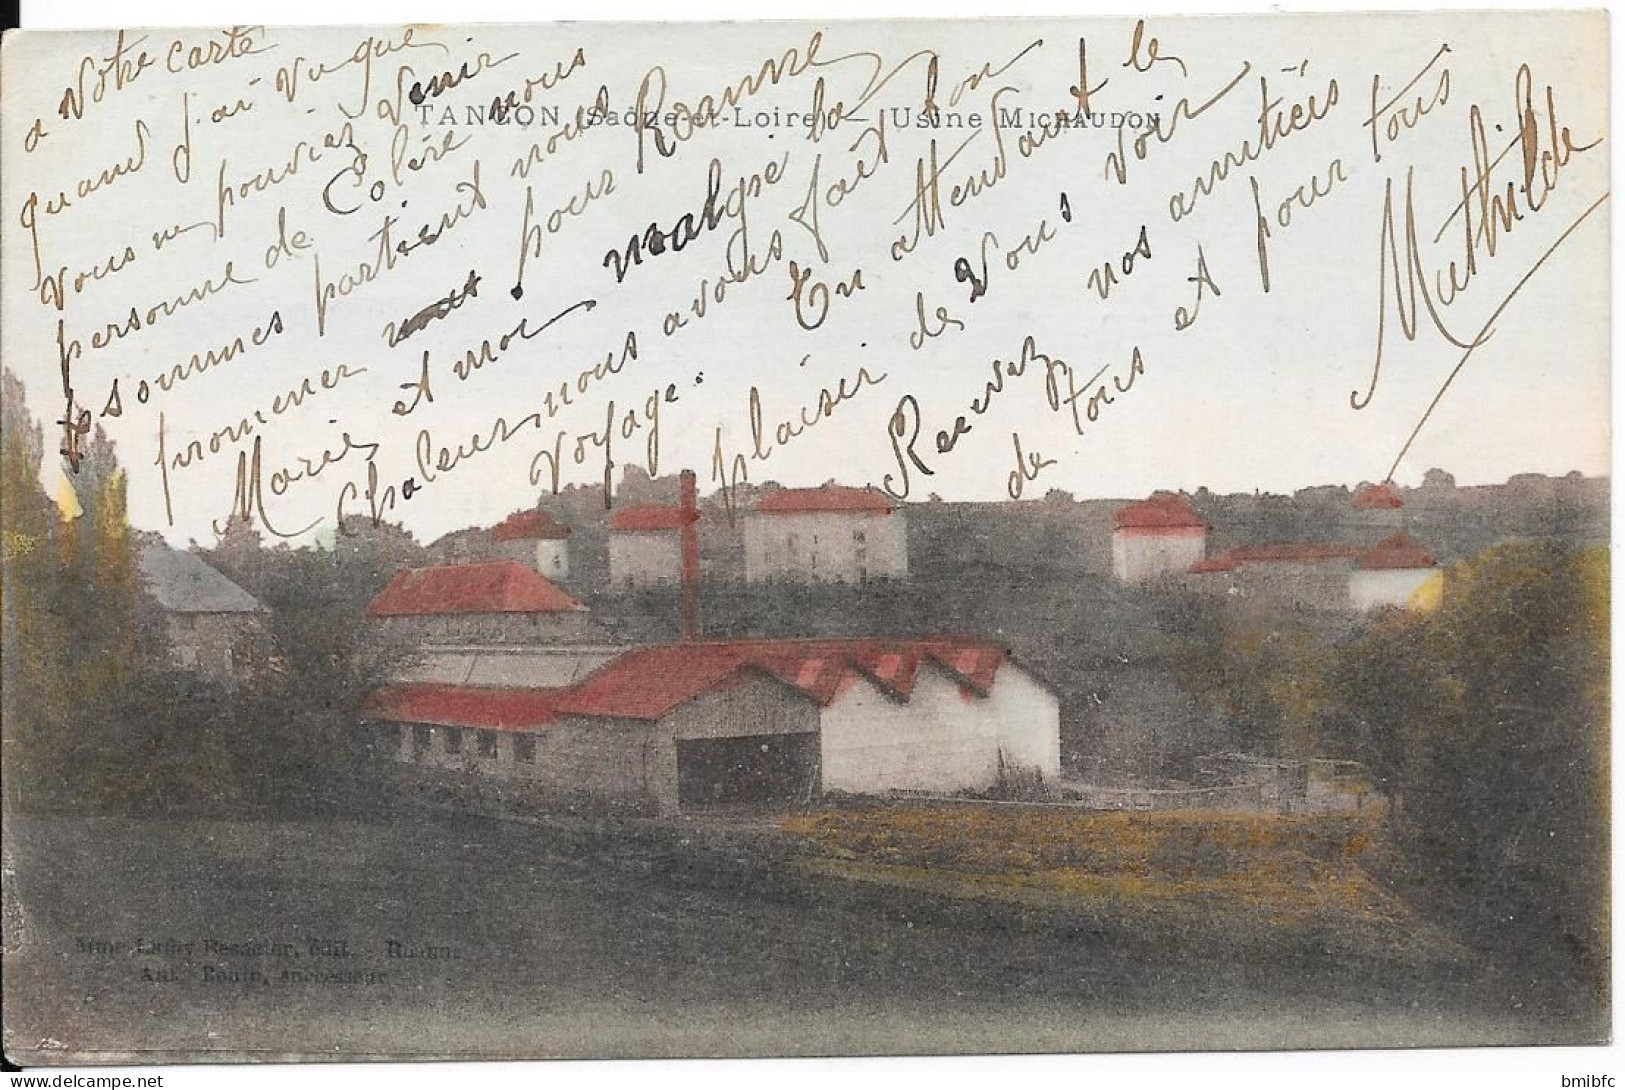 a Votre carte
quand j'ai vu que
vous ne pouviez venir
personne de Colère nous
sommes partient nous
promener pour Roanne
Marie et moi malgré la
Chaleur nous avons fait bon
Voyage.
En attendant le
plaisir de Vous voir
Recevez nos amitiés
de tous et pour tous
Mathilde
TANCON (Saône-et-Loire) — Usine MICHAUDON
Mme Lafay Resseler, édit. - Roanne
Ant. Bouin, successeur
bmibfc